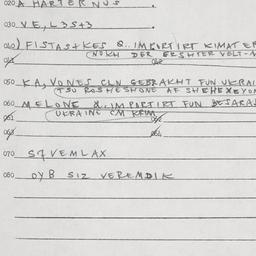 020 A HARTER NUS
030 VE, L3S+3
040) FISTASHKES &.. IMPORTIRT KIMAT ER
(NOKH DER ERSHTER VELT-
050 KA, VONES CLN GEBRAKHT FUN UKRAI
(TSU ROSHESHONE AF SHEHEXEYON
060 MELONE &.. IMPORTIRT FUN BESARA
UKRAINE CM KRIM
070 S7 VEMLAX
080 OYB SIZ VEREMDIK